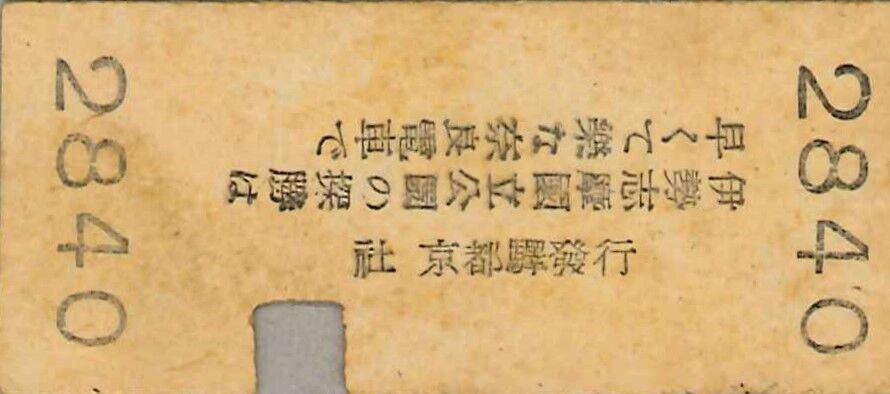 2840
社京都驛發行
伊勢志摩國立公園の探勝は
早くて樂な奈良電車で
2840